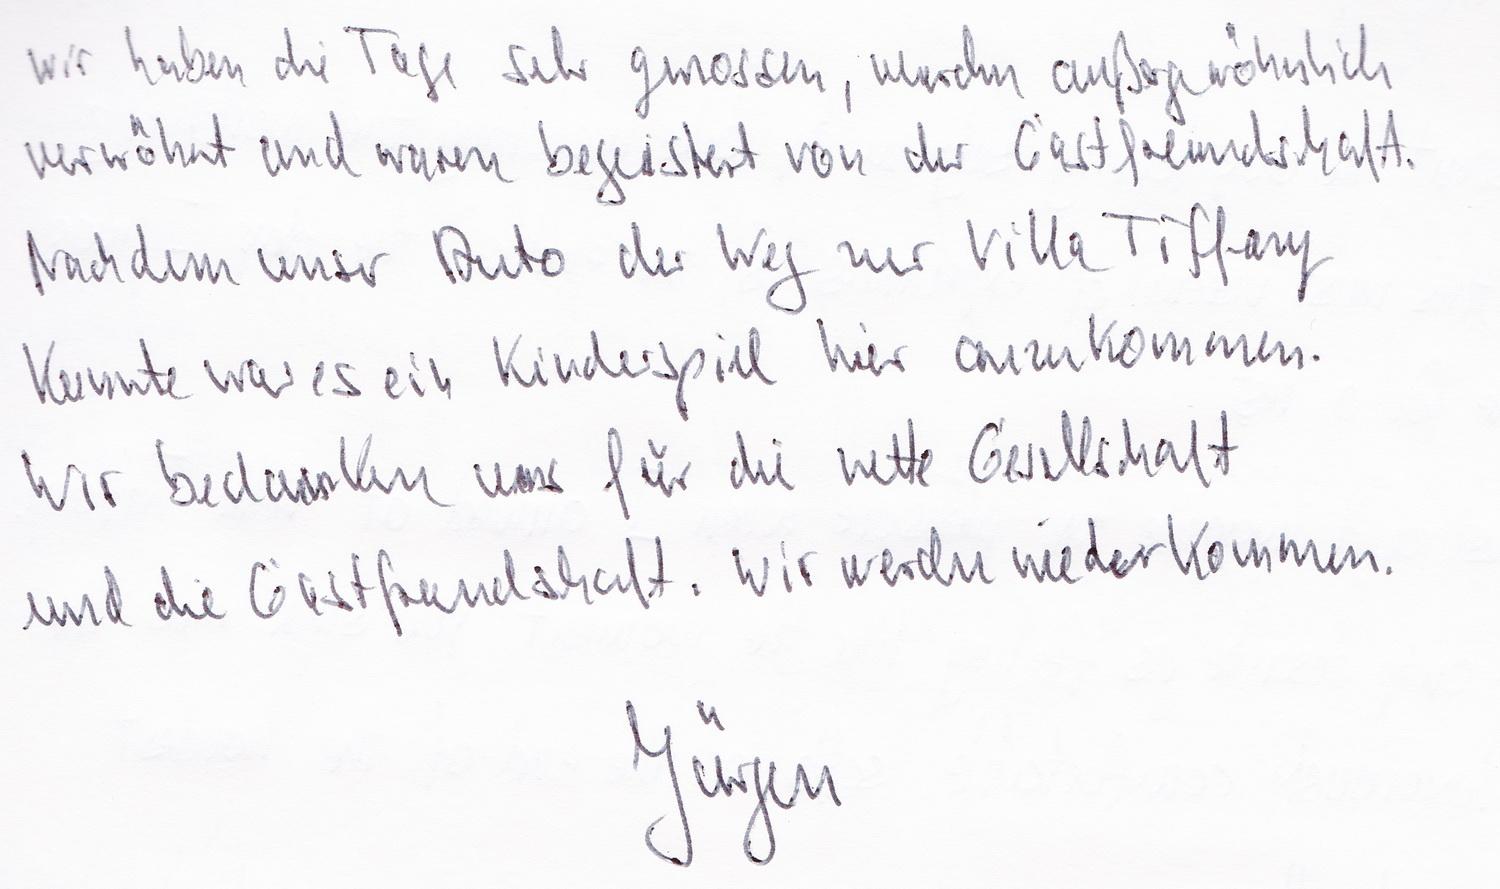 Wir haben die Tage sehr genossen, wurden außergewöhnlich
verwöhnt und waren begeistert von der Gastfreundschaft.
Nachdem unser Auto der Weg zur Villa Tiffany
kannte war es ein Kinderspiel hier anzukommen.
Wir bedanken uns für die nette Gesellschaft
und die Gastfreundschaft. Wir werden wiederkommen.
Jürgen